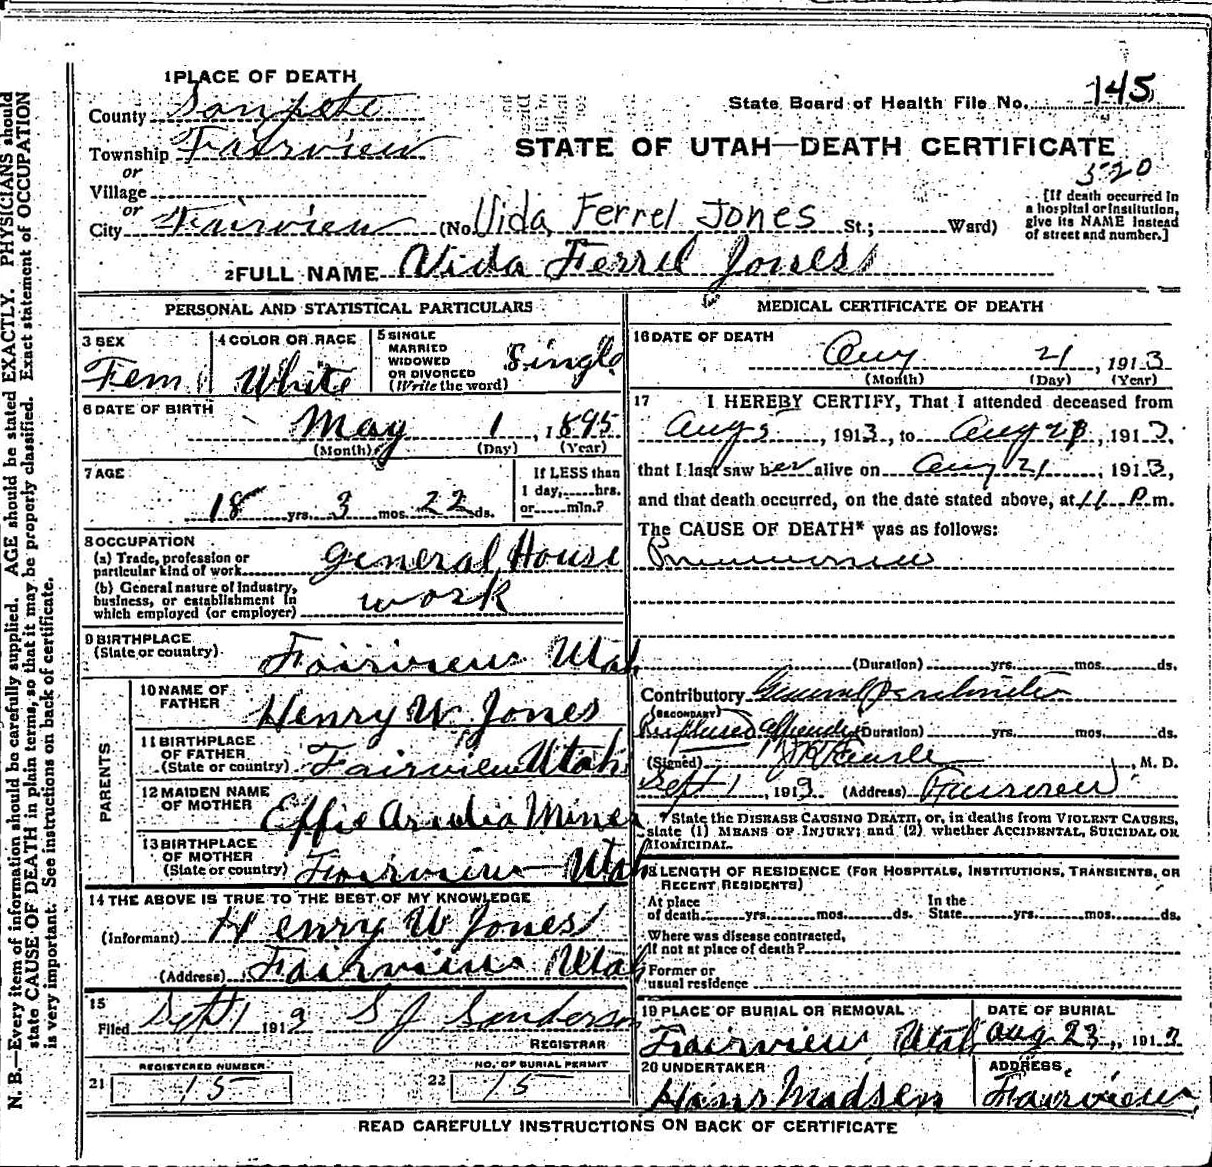 1 PLACE OF DEATH
County Sanpete
Township Fairview
or
Village
or
City Fairview (No. Vida Ferrel Jones St.; Ward)
State Board of Health File No. 145
STATE OF UTAH—DEATH CERTIFICATE
520
[If death occurred in
a hospital or institution,
give its NAME instead
of street and number.]
2 FULL NAME Vida Ferrel Jones
PERSONAL AND STATISTICAL PARTICULARS
3 SEX
Fem
4 COLOR OR RACE
White
5 SINGLE
MARRIED
WIDOWED
OR DIVORCED
(Write the word)
Single
6 DATE OF BIRTH
May 1, 1895
(Month) (Day) (Year)
7 AGE
18 yrs. 3 mos. 22 ds.
If LESS than
1 day, hrs.
or min.?
8 OCCUPATION
(a) Trade, profession or
particular kind of work General House
(b) General nature of industry,
business, or establishment in
which employed (or employer) work
9 BIRTHPLACE
(State or country) Fairview Utah
PARENTS
10 NAME OF
FATHER Henry W. Jones
11 BIRTHPLACE
OF FATHER
(State or country) Fairview Utah
12 MAIDEN NAME
OF MOTHER Effie Miner
13 BIRTHPLACE
OF MOTHER
(State or country) Fairview Utah
14 THE ABOVE IS TRUE TO THE BEST OF MY KNOWLEDGE
(Informant) Henry W Jones
(Address) Fairview Utah
15
Filed Sept 1 1913 S J Sanderson
REGISTRAR
REGISTERED NUMBER
21 15
NO. OF BURIAL PERMIT
22 15
MEDICAL CERTIFICATE OF DEATH
16 DATE OF DEATH
Aug 21, 1913
(Month) (Day) (Year)
17 I HEREBY CERTIFY, That I attended deceased from
Aug 5, 1913, to Aug, 1913,
that I last saw her alive on Aug 21, 1913,
and that death occurred, on the date stated above, at 11 P.m.
The CAUSE OF DEATH* was as follows:
Pneumonia
(Duration) yrs. mos. ds.
Contributory General
(SECONDARY)
(Duration) yrs. mos. ds.
(Signed), M. D.
Sept 1, 1913 (Address) Fairview
* State the DISEASE CAUSING DEATH, or, in deaths from VIOLENT CAUSES,
state (1) MEANS OF INJURY; and (2) whether ACCIDENTAL, SUICIDAL OR
HOMICIDAL.
18 LENGTH OF RESIDENCE (FOR HOSPITALS, INSTITUTIONS, TRANSIENTS, OR
RECENT RESIDENTS)
At place
of death yrs. mos. ds.
In the
State yrs. mos. ds.
Where was disease contracted,
If not at place of death?
Former or
usual residence
19 PLACE OF BURIAL OR REMOVAL
Fairview Utah
DATE OF BURIAL
Aug 23, 1913
20 UNDERTAKER
Hans Madsen
ADDRESS
Fairview
READ CAREFULLY INSTRUCTIONS ON BACK OF CERTIFICATE
N. B.—Every item of information should be carefully supplied. AGE should be stated EXACTLY. PHYSICIANS should
state CAUSE OF DEATH in plain terms, so that it may be properly classified. Exact statement of OCCUPATION
is very important. See instructions on back of certificate.